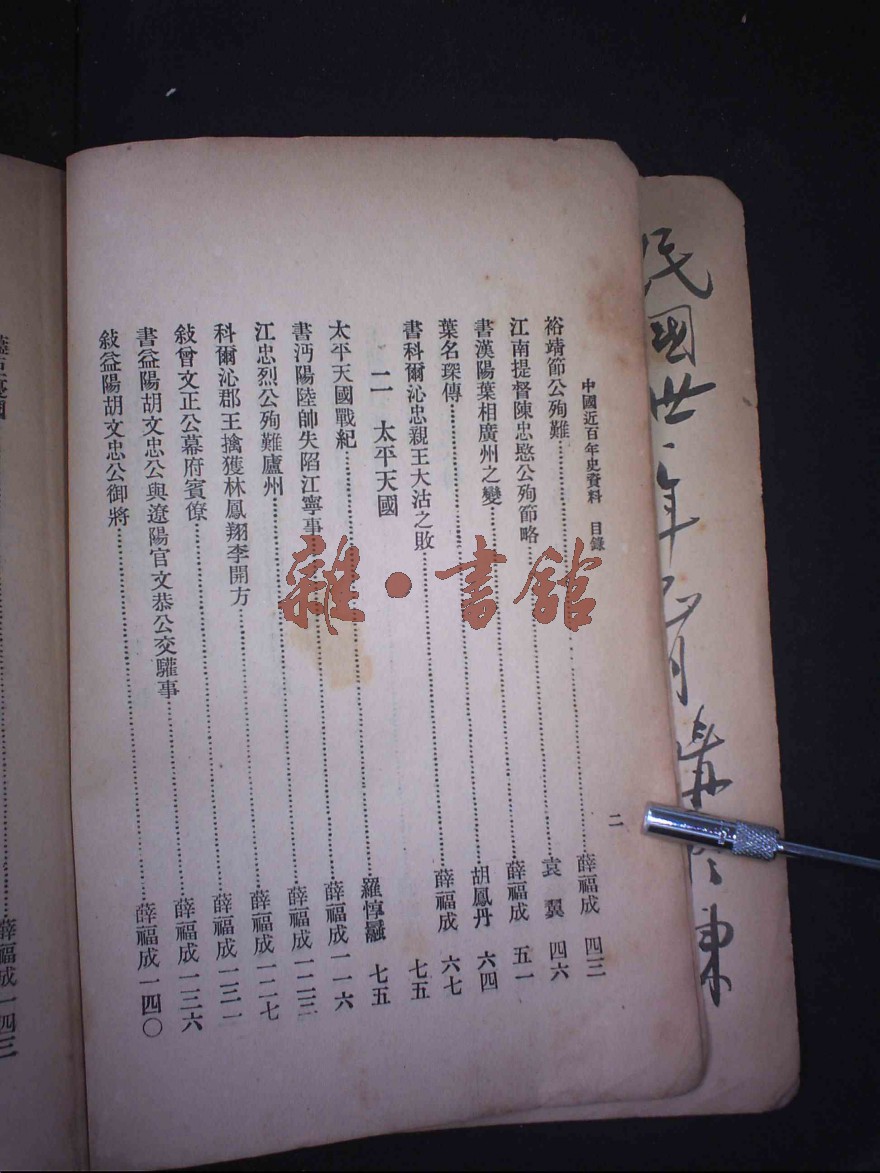 民國 年 月
中國近百年史資料 目錄 二
裕靖節公殉難……薛福成 四三
江南提督陳忠愍公殉節略……袁 翼 四六
書漢陽葉相廣州之變……薛福成 五一
葉名琛傳……胡鳳丹 六四
書科爾沁忠親王大沽之敗……薛福成 六七
二 太平天國……七五
太平天國戰紀……羅惇曧 七五
書沔陽陸帥失陷江寧事……薛福成 一一六
江忠烈公殉難廬州……薛福成 一二三
科爾沁郡王擒獲林鳳翔李開方……薛福成 一二七
敍曾文正公幕府賓僚……薛福成 一三一
書益陽胡文忠公與遼陽官文恭公交驩事……薛福成 一三六
敍益陽胡文忠公御將……薛福成 一四〇
薛福成 一四三
雜·書館